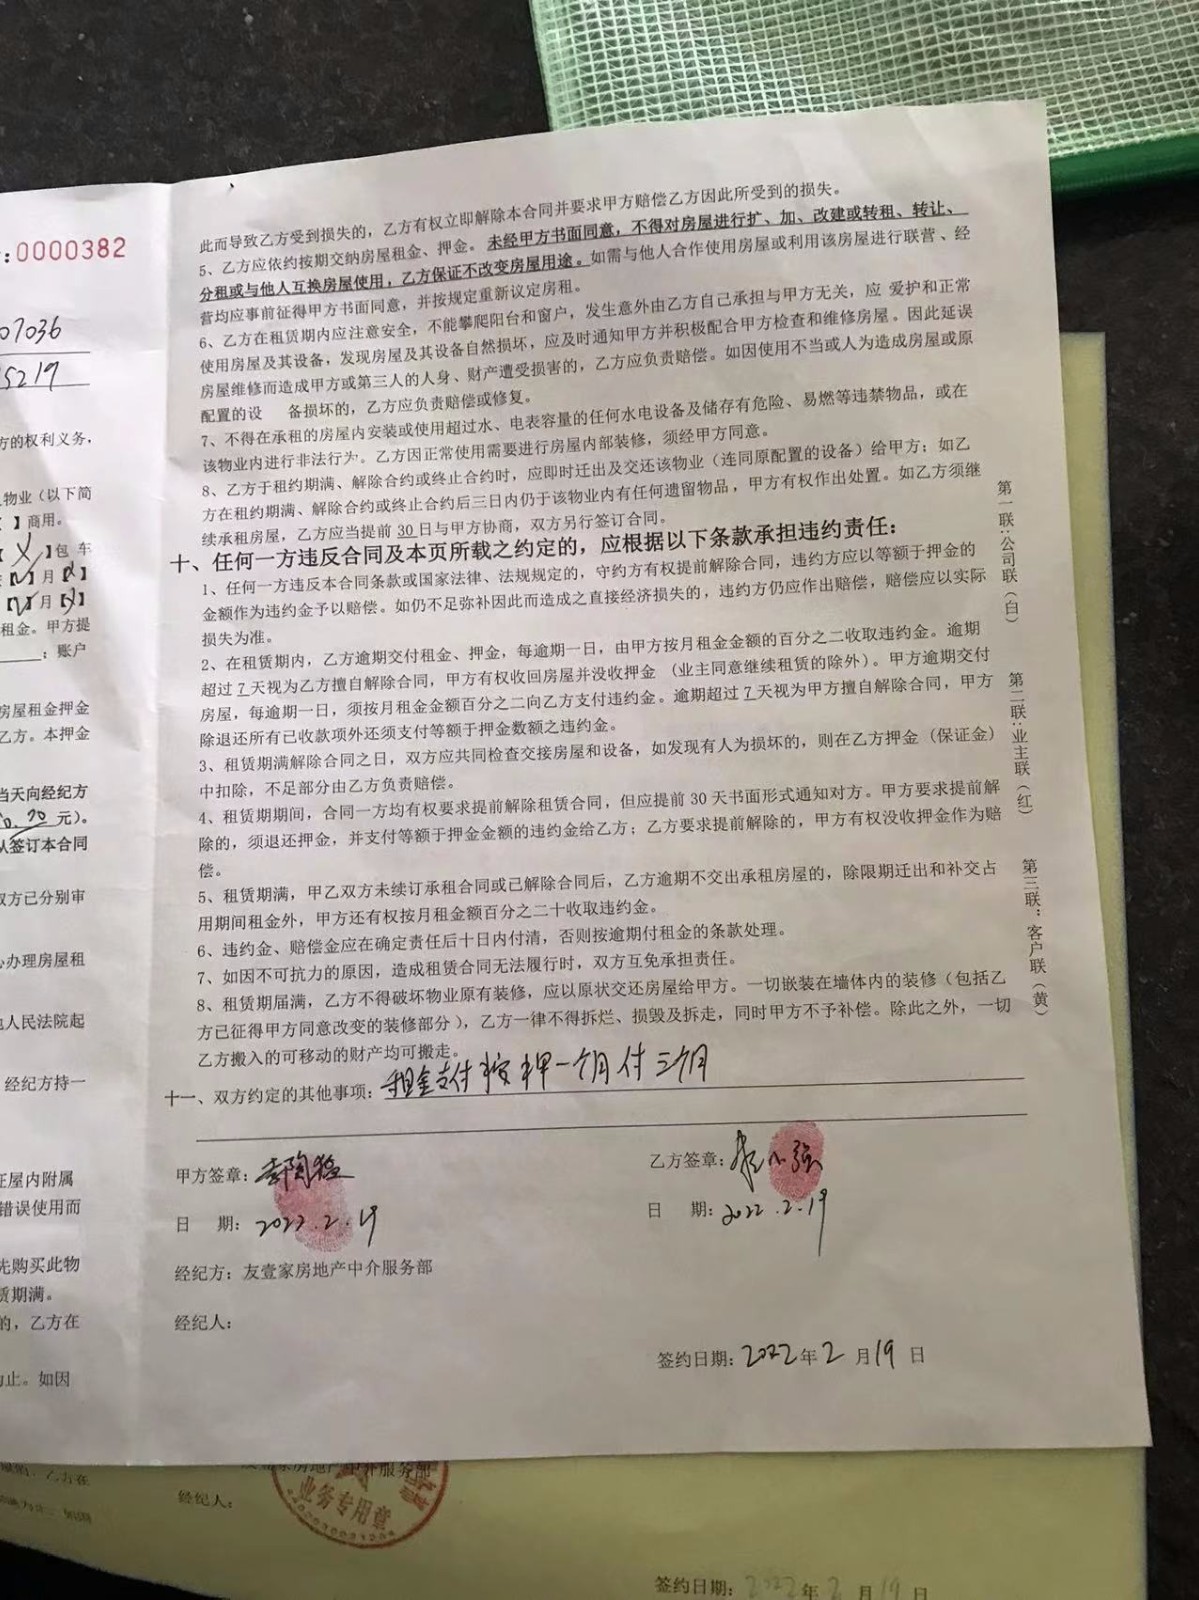 :0000382
07036
5219
方的权利义务，
物业（以下简
】商用。
】包 车
】月【
】月【
租金。甲方提
；账户
房屋租金押金
乙方。本押金
当天向经纪方
元）。
签订本合同
双方已分别审
办理房屋租
人民法院起
经纪方持一
证屋内附属
错误使用而
先购买此物
赁期满。
的，乙方在
止。如因
此而导致乙方受到损失的，乙方有权立即解除本合同并要求甲方赔偿乙方因此所受到的损失。
5、乙方应依约按期交纳房屋租金、押金。未经甲方书面同意，不得对房屋进行扩、加、改建或转租、转让、
分租或与他人互换房屋使用，乙方保证不改变房屋用途。如需与他人合作使用房屋或利用该房屋进行联营、经
营均应事前征得甲方书面同意，并按规定重新议定房租。
6、乙方在租赁期内应注意安全，不能攀爬阳台和窗户，发生意外由乙方自己承担与甲方无关，应 爱护和正常
使用房屋及其设备，发现房屋及其设备自然损坏，应及时通知甲方并积极配合甲方检查和维修房屋。因此延误
房屋维修而造成甲方或第三人的人身、财产遭受损害的，乙方应负责赔偿。如因使用不当或人为造成房屋或原
配置的设 备损坏的，乙方应负责赔偿或修复。
7、不得在承租的房屋内安装或使用超过水、电表容量的任何水电设备及储存有危险、易燃等违禁物品，或在
该物业内进行非法行为。乙方因正常使用需要进行房屋内部装修，须经甲方同意。
8、乙方于租约期满、解除合约或终止合约时，应即时迁出及交还该物业（连同原配置的设备）给甲方；如乙
方在租约期满、解除合约或终止合约后三日内仍于该物业内有任何遗留物品，甲方有权作出处置。如乙方须继
续承租房屋，乙方应当提前 30 日与甲方协商，双方另行签订合同。
十、任何一方违反合同及本页所载之约定的，应根据以下条款承担违约责任：
1、任何一方违反本合同条款或国家法律、法规规定的，守约方有权提前解除合同，违约方应以等额于押金的
金额作为违约金予以赔偿。如仍不足弥补因此而造成之直接经济损失的，违约方仍应作出赔偿，赔偿应以实际
损失为准。
2、在租赁期内，乙方逾期交付租金、押金，每逾期一日，由甲方按月租金金额的百分之二收取违约金。逾期
超过 7 天视为乙方擅自解除合同，甲方有权收回房屋并没收押金 （业主同意继续租赁的除外）。甲方逾期交付
房屋，每逾期一日，须按月租金金额百分之二向乙方支付违约金。逾期超过 7 天视为甲方擅自解除合同，甲方
除退还所有已收款项外还须支付等额于押金数额之违约金。
3、租赁期满解除合同之日，双方应共同检查交接房屋和设备，如发现有人为损坏的，则在乙方押金（保证金）
中扣除，不足部分由乙方负责赔偿。
4、租赁期期间，合同一方均有权要求提前解除租赁合同，但应提前 30 天书面形式通知对方。甲方要求提前解
除的，须退还押金，并支付等额于押金金额的违约金给乙方；乙方要求提前解除的，甲方有权没收押金作为赔
偿。
5、租赁期满，甲乙双方未续订承租合同或已解除合同后，乙方逾期不交出承租房屋的，除限期迁出和补交占
用期间租金外，甲方还有权按月租金额百分之二十收取违约金。
6、违约金、赔偿金应在确定责任后十日内付清，否则按逾期付租金的条款处理。
7、如因不可抗力的原因，造成租赁合同无法履行时，双方互免承担责任。
8、租赁期届满，乙方不得破坏物业原有装修，应以原状交还房屋给甲方。一切嵌装在墙体内的装修（包括乙
方已征得甲方同意改变的装修部分），乙方一律不得拆烂、损毁及拆走，同时甲方不予补偿。除此之外，一切
乙方搬入的可移动的财产均可搬走。
十一、双方约定的其他事项：租金支付按押一个月付三个月
甲方签章：
日 期：2022.2.19
乙方签章：小强
日 期：2022.2.19
经纪方：友壹家房地产中介服务部
经纪人：
签约日期：2022年2月19日
第一联：公司联（白）
第二联：业主联（红）
第三联：客户联（黄）
房地产中介服务部
业务专用章
经纪人：
，乙方在
签约日期：2022年2月19日